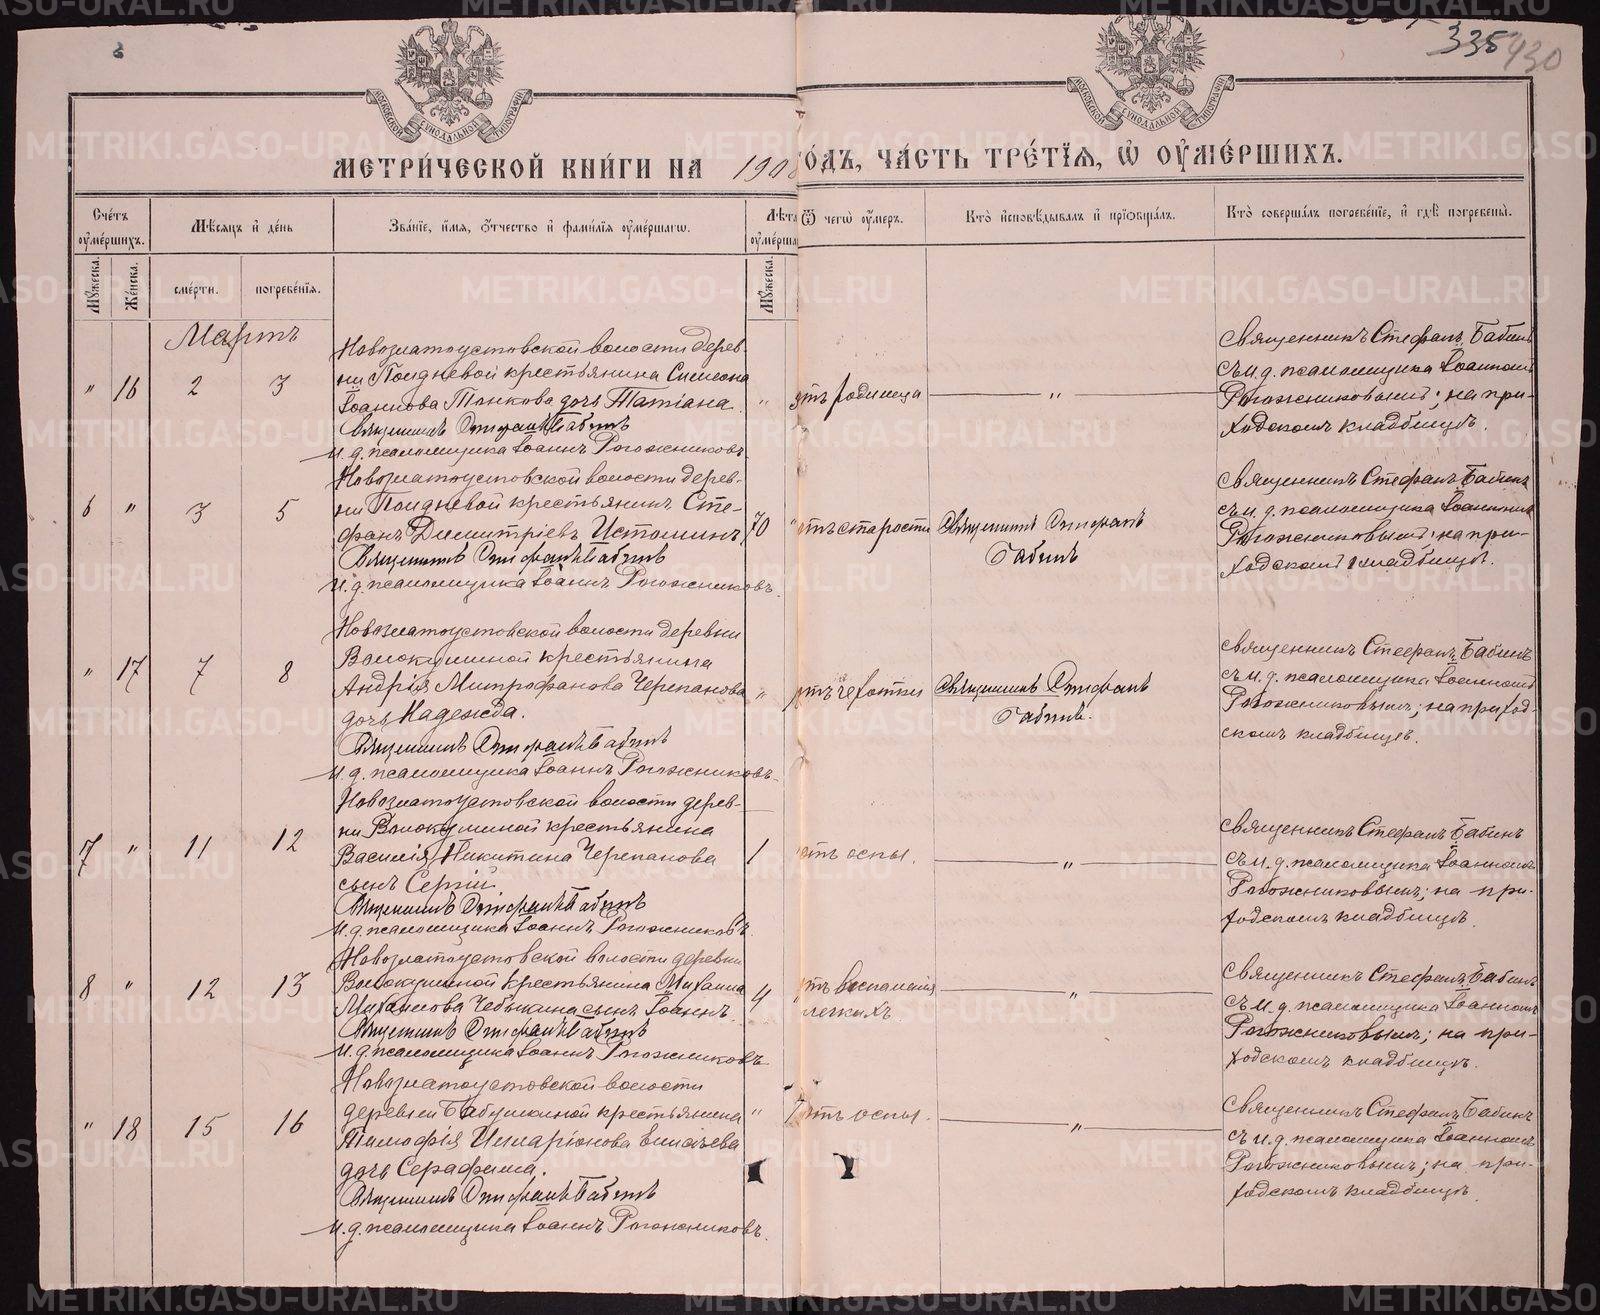 335
430
МОСКОВСКОЙ СѴНОДАЛЬНОЙ ТИПОГРАФІИ
МОСКОВСКОЙ СѴНОДАЛЬНОЙ ТИПОГРАФІИ
МЕТРИ́ЧЕСКОЙ КНИ́ГИ НА 1908
ГО́ДЪ, ЧА́СТЬ ТРЕ́ТІѦ, Ѡ҆ ОУ҆МЕ́РШИХЪ.
Сче́тъ оу҆ме́ршихъ.
Мѣ́сяцъ и҆ де́нь
Зва́нїе, и҆́мя, ѻ҆́тчество и҆ фами́лїя оу҆ме́ршагѡ.
Лѣ́та
Ѿ чегѡ̀ оу҆́меръ.
Кто̀ и҆сповѣ́дывалъ и҆ прїѡбща́лъ.
Кто̀ соверша́лъ погребе́нїе, и҆ гдѣ̀ погребены̀.
Мꙋ́жеска.
Же́нска.
сме́рти.
погребе́нїя.
Мꙋ́жеска.
Мартъ
" 16 2 3
Новозлатоустовской волости дерев-
ни Поздневой крестьянина Симеона
Іоаннова Тонкова дочь Татіана.
Священникъ Стефанъ Бабинъ
И. д. псаломщика Іоаннъ Рогожниковъ.
"
отъ родимца
"
Священникъ Стефанъ Бабинъ
съ и. д. псаломщика Іоанномъ
Рогожниковымъ; на при-
ходскомъ кладбищѣ.
6 " 3 5
Новозлатоустовской волости дерев-
ни Поздневой крестьянинъ Сте-
фанъ Димитріевъ Истоминъ
Священникъ Стефанъ Бабинъ
И. д. псаломщика Іоаннъ Рогожниковъ.
70 "
отъ старости
Священникъ Стефанъ
Бабинъ
Священникъ Стефанъ Бабинъ
съ и. д. псаломщика Іоанномъ
Рогожниковымъ; на при-
ходскомъ кладбищѣ.
" 17 7 8
Новозлатоустовской волости деревни
Волокушиной крестьянина
Андрія Митрофанова Черепанова
дочь Надежда.
Священникъ Стефанъ Бабинъ
И. д. псаломщика Іоаннъ Рогожниковъ.
"
отъ чехотки
Священникъ Стефанъ
Бабинъ.
Священникъ Стефанъ Бабинъ
съ и. д. псаломщика Іоанномъ
Рогожниковымъ; на приход-
скомъ кладбищѣ.
7 " 11 12
Новозлатоустовской волости дерев-
ни Волокушиной крестьянина
Василія Никитина Черепанова
сынъ Сергій.
Священникъ Стефанъ Бабинъ
И. д. псаломщика Іоаннъ Рогожниковъ.
1
отъ оспы.
"
Священникъ Стефанъ Бабинъ
съ и. д. псаломщика Іоанномъ
Рогожниковымъ; на при-
ходскомъ кладбищѣ.
8 " 12 13
Новозлатоустовской волости деревни
Волокушиной крестьянина Михаила
Михаилова Чебыкина сынъ Іоаннъ.
Священникъ Стефанъ Бабинъ
И. д. псаломщика Іоаннъ Рогожниковъ.
4
отъ воспаленія
легкихъ.
"
Священникъ Стефанъ Бабинъ
съ и. д. псаломщика Іоанномъ
Рогожниковымъ; на при-
ходскомъ кладбищѣ.
" 18 15 16
Новозлатоустовской волости
деревни Бабушкиной крестьянина
Тимофія Иларіонова
дочь Серафима.
Священникъ Стефанъ Бабинъ
И. д. псаломщика Іоаннъ Рогожниковъ.
"
отъ оспы.
"
Священникъ Стефанъ Бабинъ
съ и. д. псаломщика Іоанномъ
Рогожниковымъ; на при-
ходскомъ кладбищѣ.
METRIKI.GASO-URAL.RU